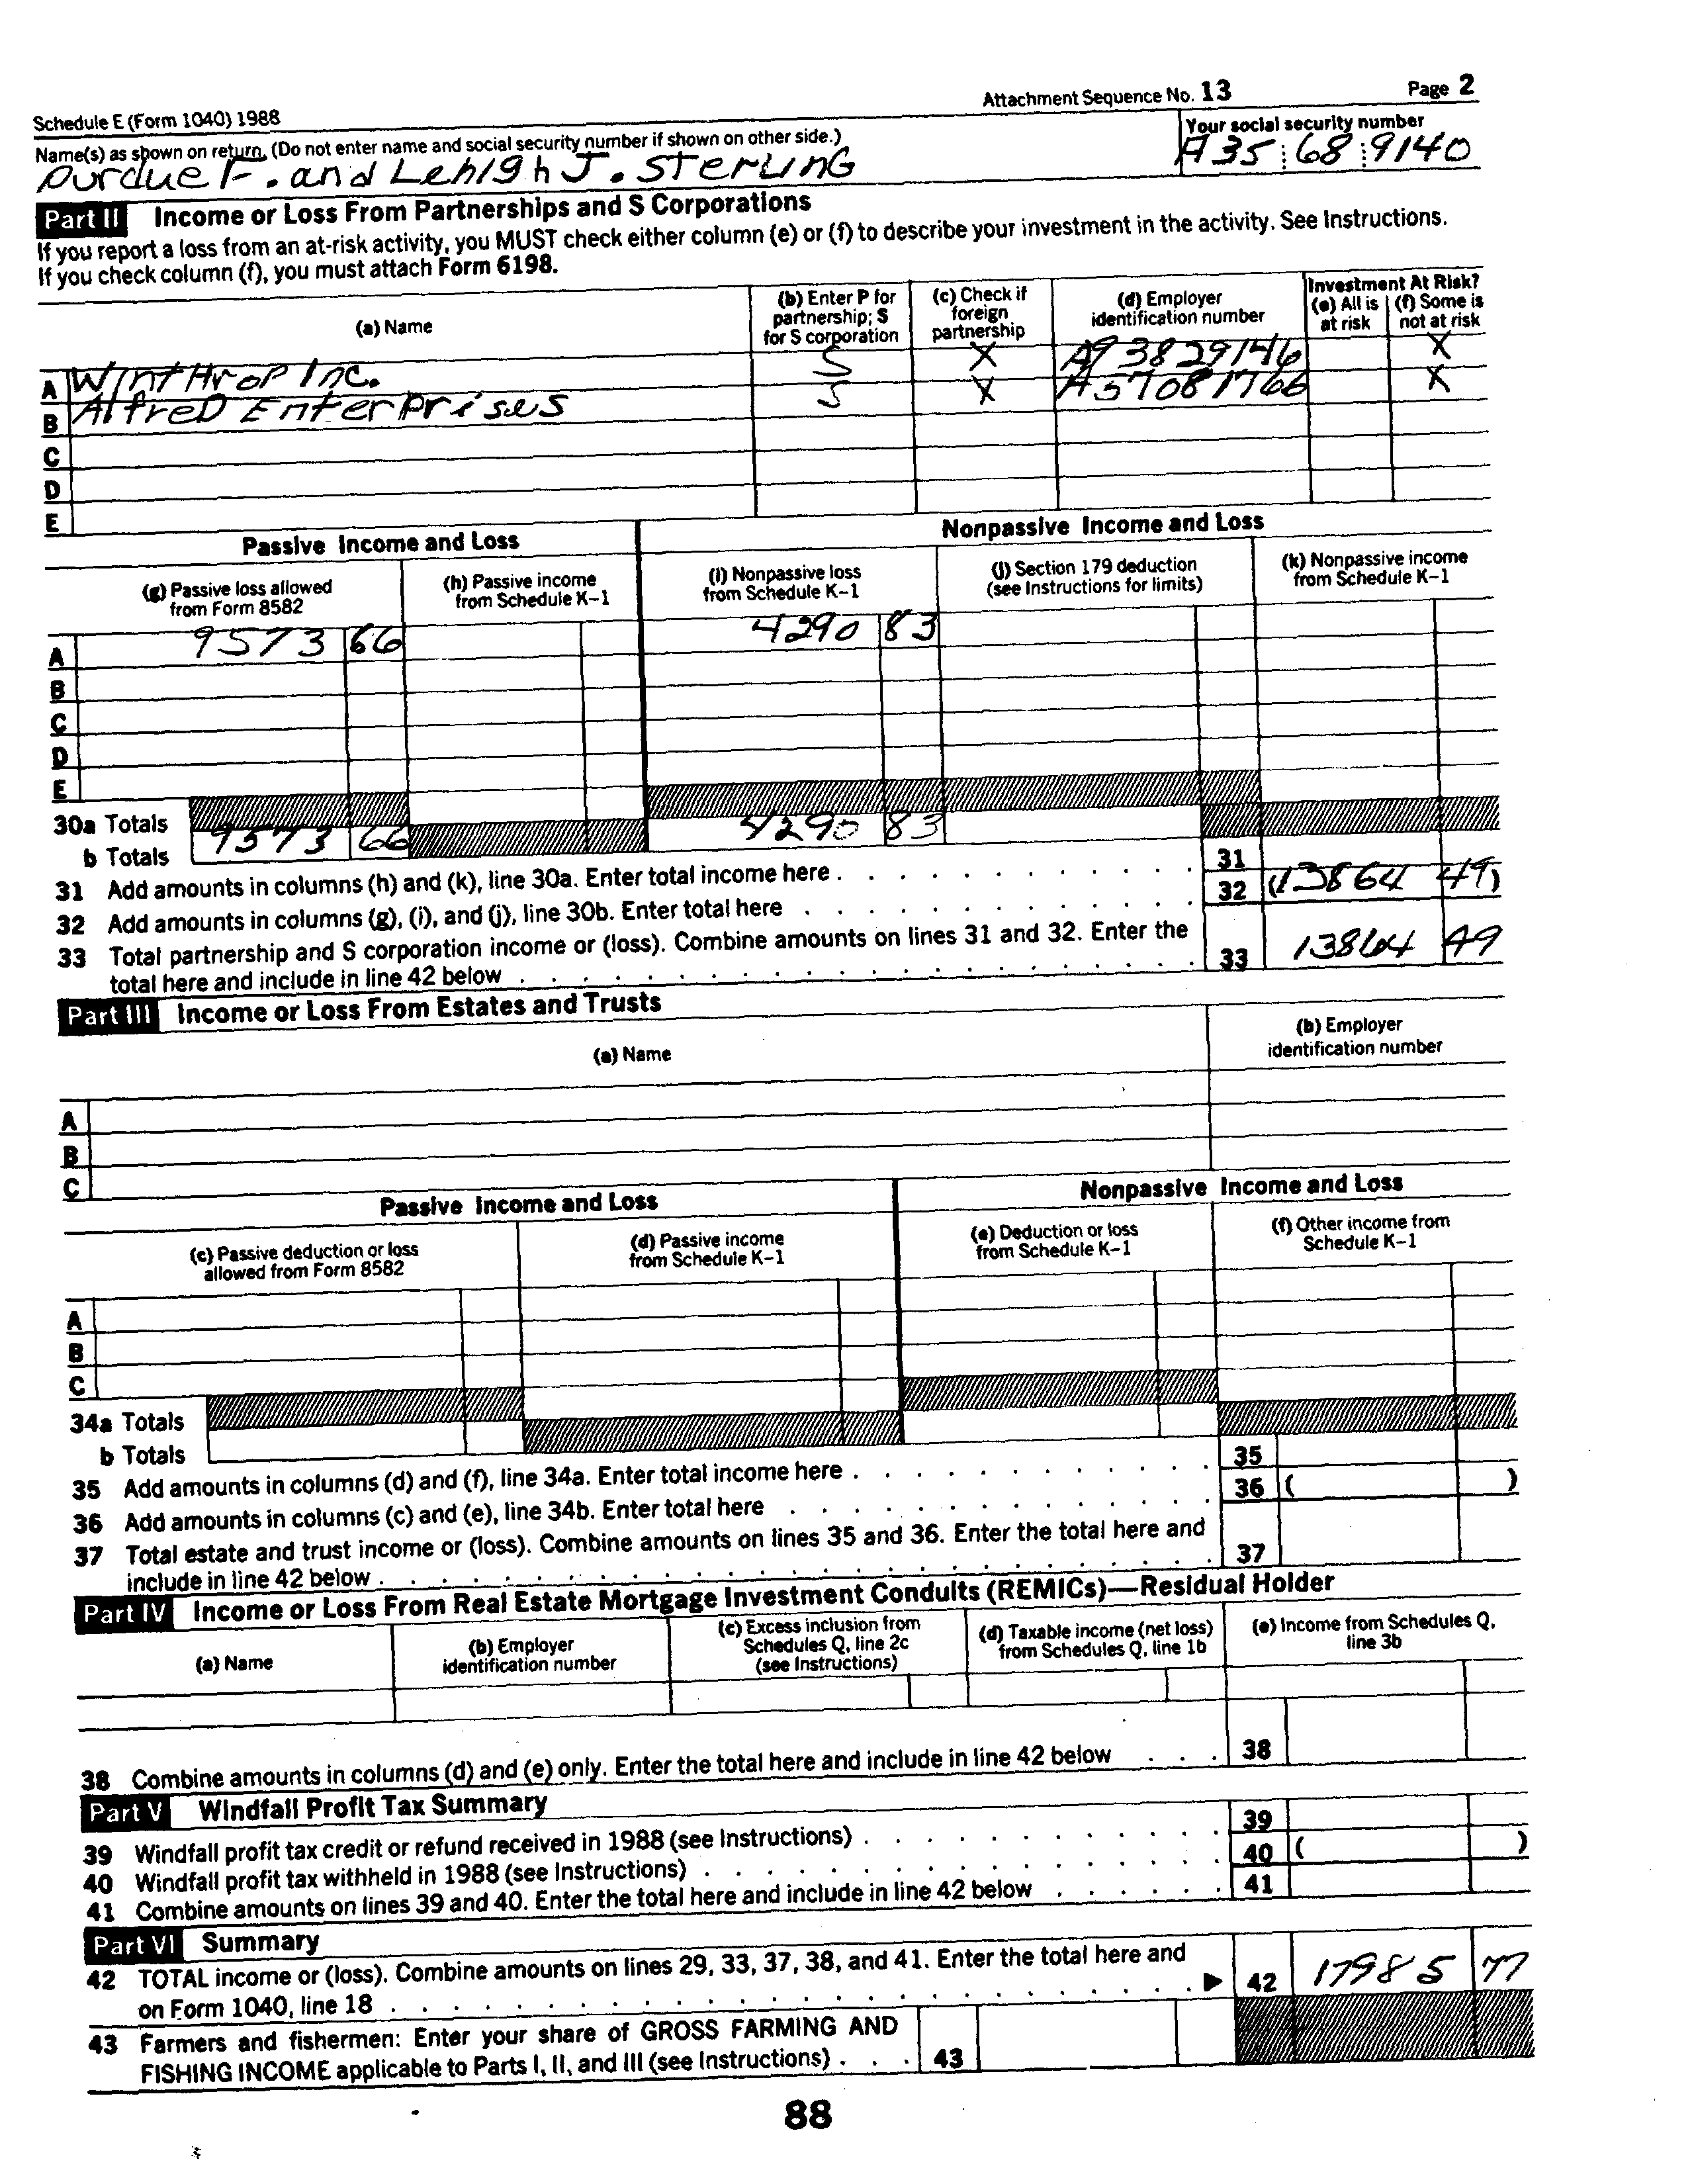 Schedule E (Form 1040) 1988 Attachment Sequence No. 13 Page 2
Name(s) as shown on return. (Do not enter name and social security number if shown on other side.) Your social security number
Purdue F. and Lehigh J. Sterling A35 68 9140
Part II Income or Loss From Partnerships and S Corporations
If you report a loss from an at-risk activity, you MUST check either column (e) or (f) to describe your investment in the activity. See Instructions.
If you check column (f), you must attach Form 6198.
(a) Name (b) Enter P for partnership; S for S corporation (c) Check if foreign partnership (d) Employer identification number Investment At Risk? (e) All is at risk (f) Some is not at risk
A Winthrop Inc. S X A93829146 X
B Alfred Enterprises S X A57081766 X
C
D
E
Passive Income and Loss Nonpassive Income and Loss
(g) Passive loss allowed from Form 8582 (h) Passive income from Schedule K–1 (i) Nonpassive loss from Schedule K–1 (j) Section 179 deduction (see Instructions for limits) (k) Nonpassive income from Schedule K–1
A 9573 66 4290 83
B
C
D
E
30a Totals
b Totals 9573 66 4290 83
31 Add amounts in columns (h) and (k), line 30a. Enter total income here . . . . . . . . . . . . 31
32 Add amounts in columns (g), (i), and (j), line 30b. Enter total here . . . . . . . . . . . . . 32 (13864 49)
33 Total partnership and S corporation income or (loss). Combine amounts on lines 31 and 32. Enter the
total here and include in line 42 below . . . . . . . . . . . . . . . . . . . . . . 33 13864 49
Part III Income or Loss From Estates and Trusts
(a) Name (b) Employer identification number
A
B
C
Passive Income and Loss Nonpassive Income and Loss
(c) Passive deduction or loss allowed from Form 8582 (d) Passive income from Schedule K–1 (e) Deduction or loss from Schedule K–1 (f) Other income from Schedule K–1
A
B
C
34a Totals
b Totals
35 Add amounts in columns (d) and (f), line 34a. Enter total income here . . . . . . . . . . . . 35
36 Add amounts in columns (c) and (e), line 34b. Enter total here . . . . . . . . . . . . . . 36 ( )
37 Total estate and trust income or (loss). Combine amounts on lines 35 and 36. Enter the total here and
include in line 42 below . . . . . . . . . . . . . . . . . . . . . . . . . . . 37
Part IV Income or Loss From Real Estate Mortgage Investment Conduits (REMICs)—Residual Holder
(a) Name (b) Employer identification number (c) Excess inclusion from Schedules Q, line 2c (see Instructions) (d) Taxable income (net loss) from Schedules Q, line 1b (e) Income from Schedules Q, line 3b
38 Combine amounts in columns (d) and (e) only. Enter the total here and include in line 42 below . . . 38
Part V Windfall Profit Tax Summary
39 Windfall profit tax credit or refund received in 1988 (see Instructions) . . . . . . . . . . . . 39
40 Windfall profit tax withheld in 1988 (see Instructions) . . . . . . . . . . . . . . . . . 40 ( )
41 Combine amounts on lines 39 and 40. Enter the total here and include in line 42 below . . . . . . 41
Part VI Summary
42 TOTAL income or (loss). Combine amounts on lines 29, 33, 37, 38, and 41. Enter the total here and
on Form 1040, line 18 . . . . . . . . . . . . . . . . . . . . . . . . . . ▶ 42 17985 77
43 Farmers and fishermen: Enter your share of GROSS FARMING AND
FISHING INCOME applicable to Parts I, II, and III (see Instructions) . . . 43
88